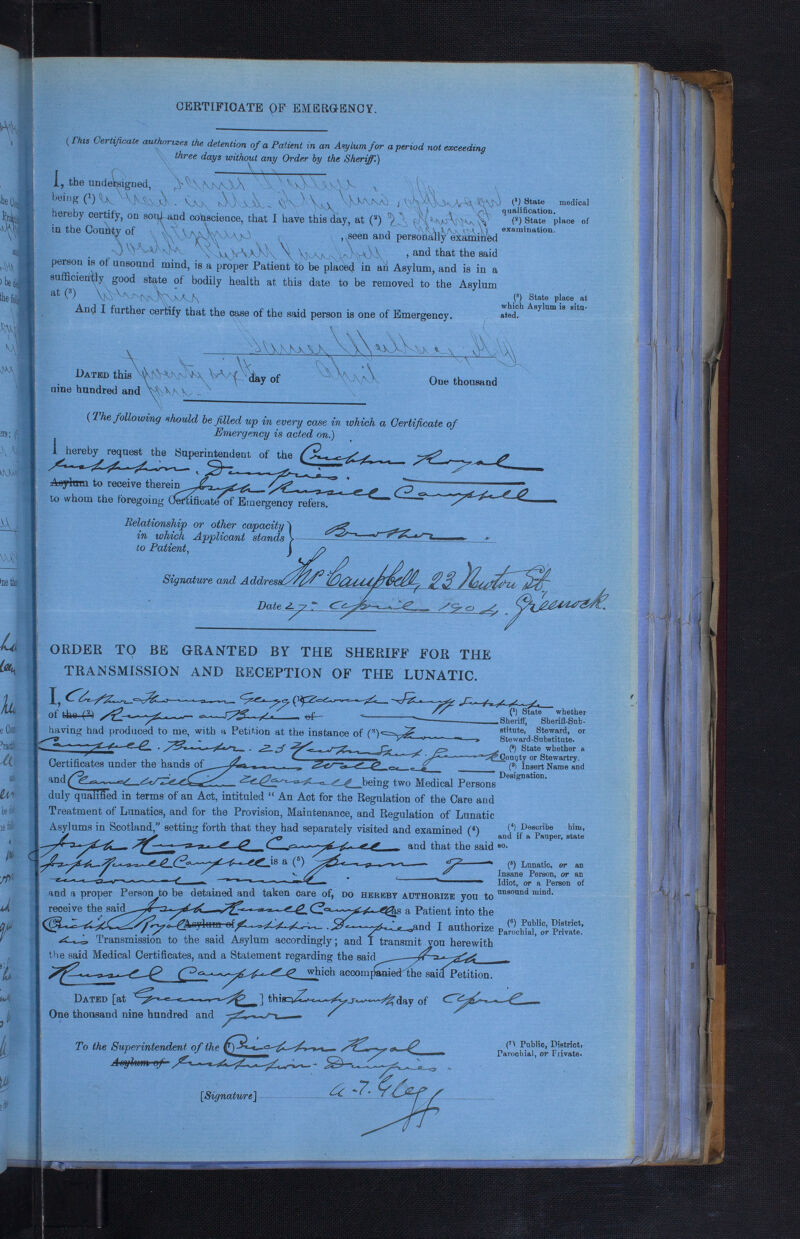 CERTIFICATE OF EMERGENCY.
(This Certificate authorizes the detention of a Patient in an Asylum for a period not exceeding
three days without any Order by the Sheriff.)
I, the undersigned, James Wallace
being (¹) a Grad. in Med. of the Univ. of Glasgow
hereby certify, on soul and conscience, that I have this day, at (²) 23 Newton St
in the County of Renfrew, seen and personally examined
Joseph Russell Campbell, and that the said
person is of unsound mind, is a proper Patient to be placed in an Asylum, and is in a
sufficiently good state of bodily health at this date to be removed to the Asylum
at (³) Dumfries
And I further certify that the case of the said person is one of Emergency.
(¹) State medical
qualification.
(²) State place of
examination.
(³) State place at
which Asylum is situ-
ated.
James Wallace, M.D.
DATED this twenty sixth day of April One thousand
nine hundred and four.
(The following should be filled up in every case in which a Certificate of
Emergency is acted on.)
I hereby request the Superintendent of the Crichton Royal
Institution, Dumfries.
Asylum to receive therein Joseph Russell Campbell
to whom the foregoing Certificate of Emergency refers.
Relationship or other capacity
in which Applicant stands
to Patient,
Brother.
Signature and Address Thos Campbell, 23 Newton St,
Greenock.
Date 27 April 1904.
ORDER TO BE GRANTED BY THE SHERIFF FOR THE
TRANSMISSION AND RECEPTION OF THE LUNATIC.
I, Arthur Thomson Glegg (¹) Advocate Sheriff Substitute
of the (²) Renfrew and Bute of
having had produced to me, with a Petition at the instance of (³) Thomas
Campbell, 23 Newton Street, Greenock
Certificates under the hands of James Wallace
and Claud William Marshall being two Medical Persons
duly qualified in terms of an Act, intituled "An Act for the Regulation of the Care and
Treatment of Lunatics, and for the Provision, Maintenance, and Regulation of Lunatic
Asylums in Scotland," setting forth that they had separately visited and examined (⁴)
Joseph Russell Campbell and that the said
Joseph Russell Campbell is a (⁵) person of
unsound mind
and a proper Person to be detained and taken care of, DO HEREBY AUTHORIZE you to
receive the said Joseph Russell Campbell as a Patient into the
(⁶) Crichton Royal Asylum of Institution, Dumfries and I authorize
his Transmission to the said Asylum accordingly; and I transmit you herewith
the said Medical Certificates, and a Statement regarding the said Joseph
Russell Campbell which accompanied the said Petition.
(¹) State whether
Sheriff, Sheriff-Sub-
stitute, Steward, or
Steward-Substitute.
(²) State whether a
County or Stewartry.
(³) Insert Name and
Designation.
(⁴) Describe him,
and if a Pauper, state
so.
(⁵) Lunatic, or an
Insane Person, or an
Idiot, or a Person of
unsound mind.
(⁶) Public, District,
Parochial, or Private.
DATED [at Greenock] this twenty seventh day of April
One thousand nine hundred and four
To the Superintendent of the (⁷) Crichton Royal
Asylum of Institution. Dumfries.
(⁷) Public, District,
Parochial, or Private.
[Signature] A. T. Glegg